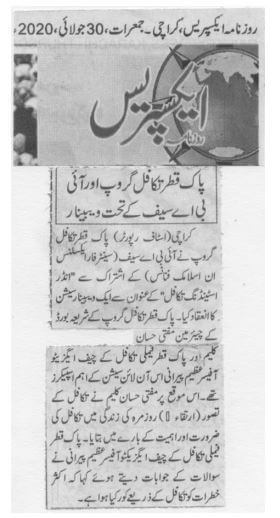 روزنامہ ایکسپریس، کراچی۔ جمعرات، 30 جولائی، 2020ء
روزنامہ
ایکسپریس
پاک قطر تکافل گروپ اور آئی
بی اے سیف کے تحت ویبینار
کراچی (اسٹاف رپورٹر) پاک قطر تکافل
گروپ نے آئی بی اے سیف (سینٹر فار ایکسیلنس
ان اسلامک فنانس) کے اشتراک سے "انڈر
اسٹینڈنگ تکافل" کے عنوان سے ایک ویبینار سیشن
کا انعقاد کیا۔ پاک قطر تکافل گروپ کے شریعہ بورڈ
کے چیئرمین مفتی حسان
کلیم اور پاک قطر فیملی تکافل کے چیف ایگزیکٹو
آفیسر عظیم پیرانی اس آن لائن سیشن کے اہم اسپیکرز
تھے۔ اس موقع پر مفتی حسان کلیم نے تکافل کے
تصور (ارتقاء) روزمرہ کی زندگی میں تکافل کی
ضرورت اور اہمیت کے بارے میں بتایا۔ پاک قطر
فیملی تکافل کے چیف ایگزیکٹو آفیسر عظیم پیرانی نے
سوالات کے جوابات دیتے ہوئے کہا کہ اکثر
خطرات کو تکافل کے ذریعے کور کیا ہوا ہے۔